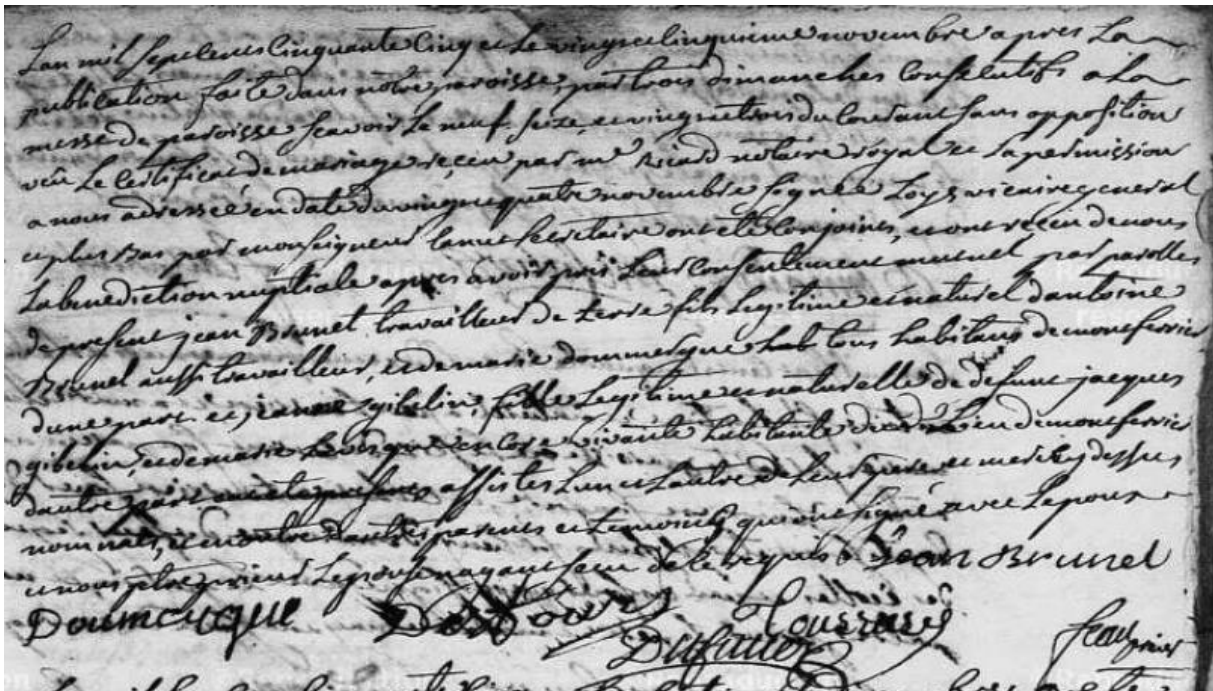 Lan mil sept cens cinquante cinq et le vingt et cinquieme novembre apres la
publication faite dans notre paroisse, par trois dimanches consecutifs a la
messe de paroisse scavoir le neuf, seize, et vingt et trois du courant sans opposition
veu le certificat de mariage receu par me ricard notaire royal et la permission
a nous adressée en date du vingt et quatre novembre signée Loys vicaire general
et plus bas par monseigneur secretaire ont eté conjoints, et ont receu de nous
la benediction nuptiale apres avoir pris leur consentement mutuel par parolles
de present jean Brunel travailleur de terre fils legitime et naturel dantoine
Brunel aussi travailleur, et de marie dommergue tous habitans de montferrier
dune part. et jeanne gibelin, fille legitime et naturelle de defunt jacques
gibelin, et de marie encore vivante habitante du lieu de montferrier
dautre part assistes lun et lautre de leurs pere et mere cy dessus
nommés, et en outre dautres parents et temoins qui ont signé avec lepoux
et nous pretre prieur lepouse nayant sceu de ce requise Jean Brunel
Doumergue
Dufaur
prieur